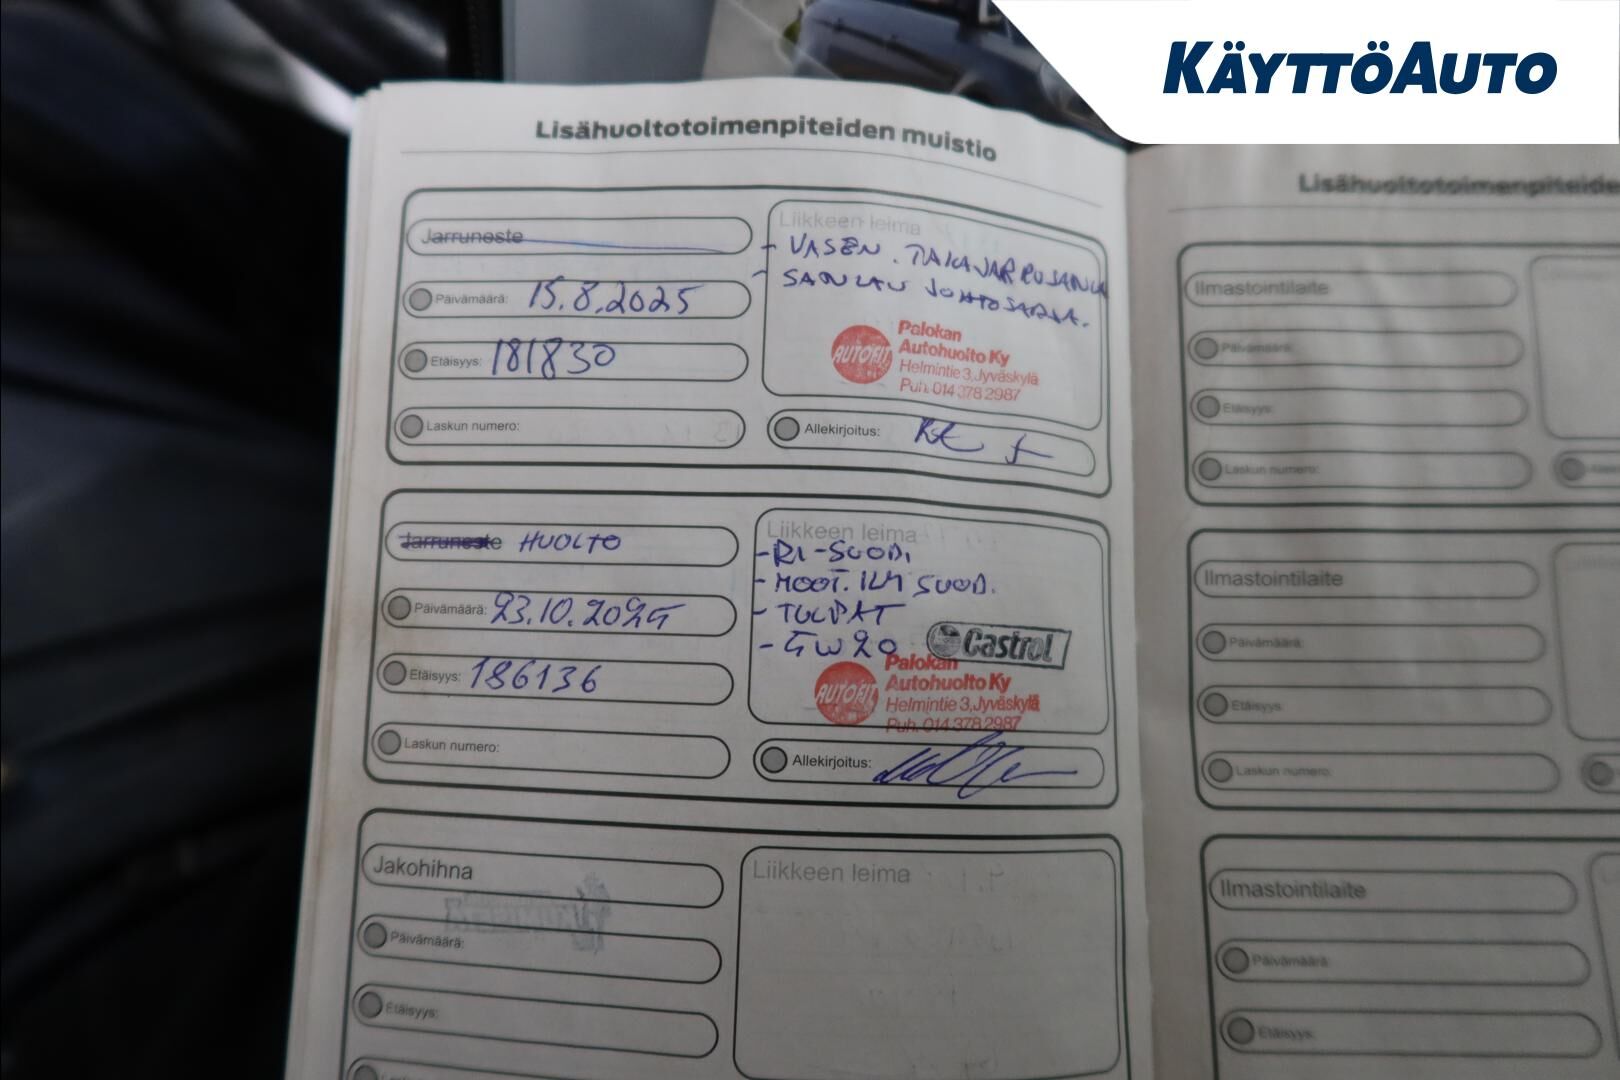 KÄYTTÖAUTO
Lisähuoltotoimenpiteiden muistio
Jarruneste
Päivämäärä: 15.8.2025
Etäisyys: 181830
Laskun numero:
Liikkeen leima
- VASEN. TAKAJARRUSATULA
- SATULAN JOHTOSARJA.
AUTOFIT
Palokan
Autohuolto Ky
Helmintie 3, Jyväskylä
Puh. 014 378 2987
Allekirjoitus:
Jarruneste HUOLTO
Päivämäärä: 23.10.2025
Etäisyys: 186136
Laskun numero:
Liikkeen leima
- RI-SUOD.
- MOOT. ILM SUOD.
- TULPAT
- 5W20
Castrol
AUTOFIT
Palokan
Autohuolto Ky
Helmintie 3, Jyväskylä
Puh. 014 378 2987
Allekirjoitus:
Jakohihna
Päivämäärä:
Etäisyys:
Liikkeen leima
Lisähuoltotoimenpiteide
Ilmastointilaite
Päivämäärä:
Etäisyys:
Laskun numero:
Ilmastointilaite
Päivämäärä:
Etäisyys:
Laskun numero:
Ilmastointilaite
Päivämäärä:
Etäisyys: